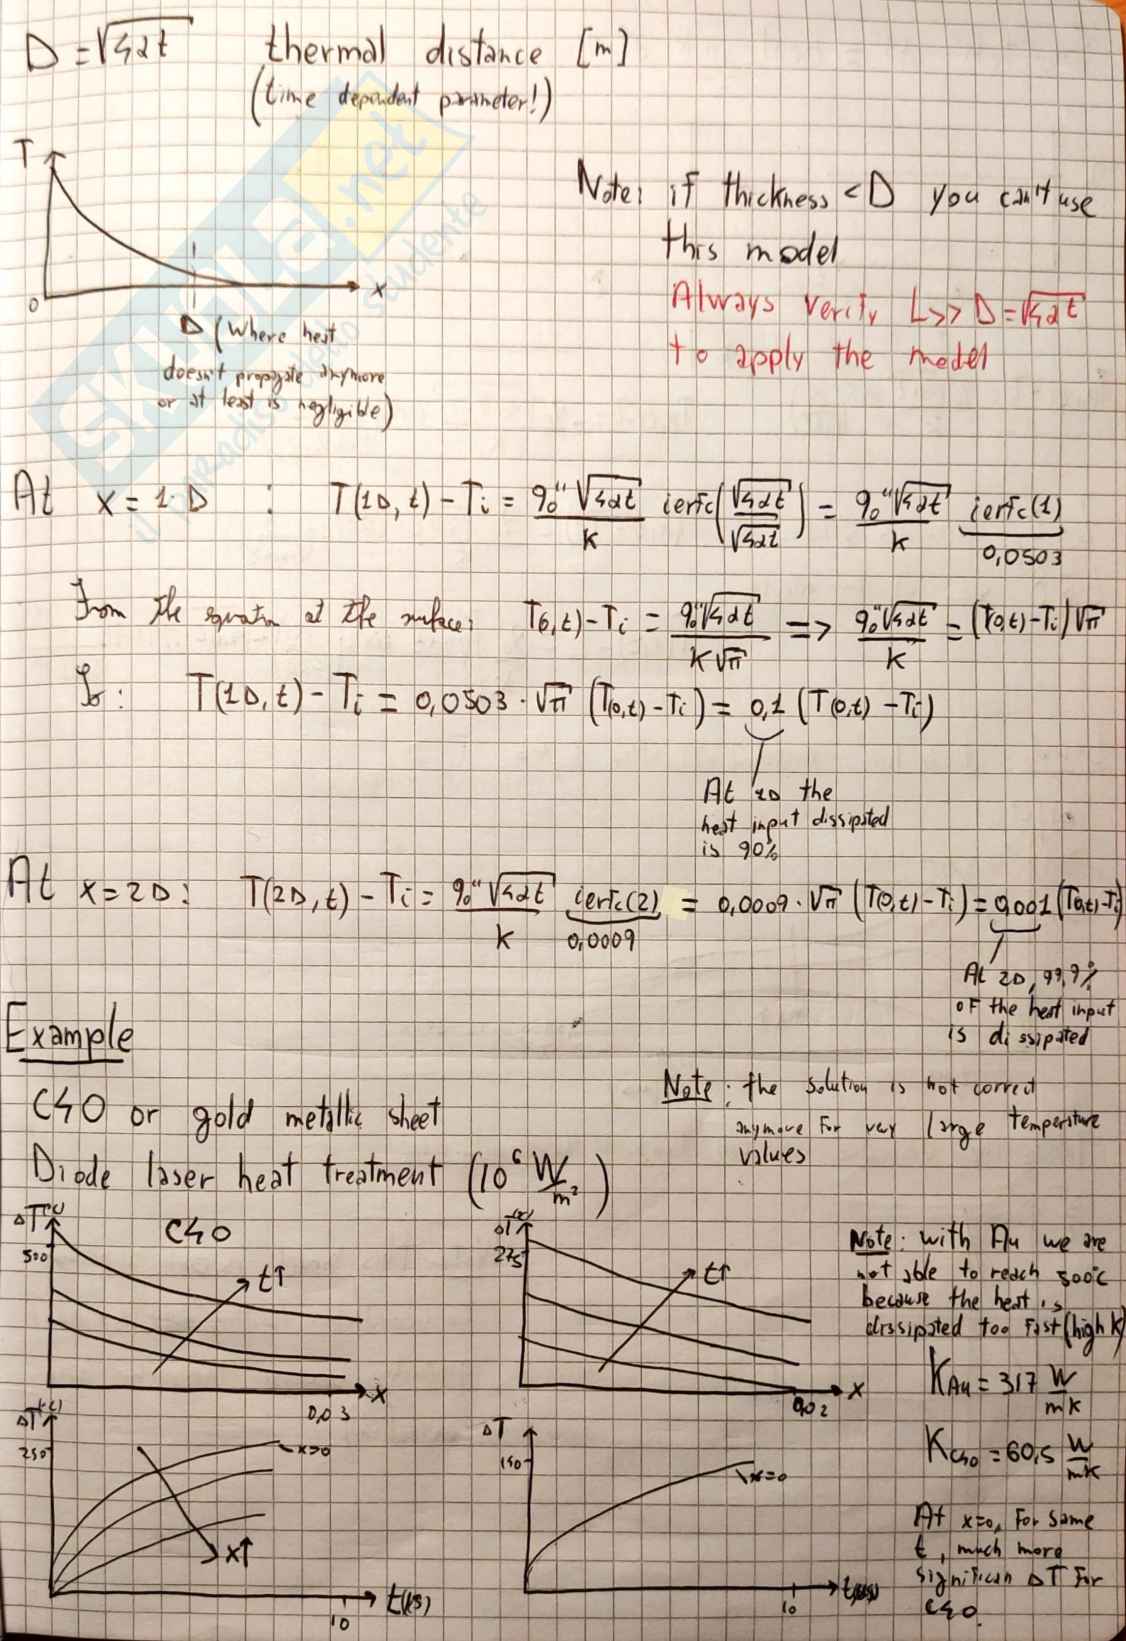 D = √4αt thermal distance [m]
(time dependent parameter!)
T
0
x
D (where heat
doesn't propagate anymore
or at least is negligible)
Note: if thickness < D you can't use
this model
Always verify L>> D = √4αt
to apply the model
SKUOLA.net
il paradiso dello studente
At x = 1·D : T(1D, t) - Ti = q₀'' √4αt / k ierfc(√4αt / √4αt) = q₀'' √4αt / k ierfc(1)
0,0503
From the equation at the surface: T(0,t) - Ti = q₀'' √4αt / k√π => q₀'' √4αt / k = (T(0,t) - Ti) √π
So: T(1D, t) - Ti = 0,0503 · √π (T(0,t) - Ti) = 0,1 (T(0,t) - Ti)
At 1D the
heat input dissipated
is 90%
At x = 2D: T(2D, t) - Ti = q₀'' √4αt / k ierfc(2) = 0,0009 · √π (T(0,t) - Ti) = 0,001 (T(0,t) - Ti)
0,0009
At 2D, 99,9%
of the heat input
is dissipated
Example
C40 or gold metallic sheet
Diode laser heat treatment (10⁶ W/m²)
Note: the solution is not correct
anymore for very large temperature
values
ΔT(°C)
500
C40
t↑
x
0,03
ΔT(°C)
275
t↑
x
0,02
Note: with Au we are
not able to reach 500°C
because the heat is
dissipated too fast (high k)
K Au = 317 W/mK
K C40 = 60,5 W/mK
ΔT(°C)
250
x=0
x↑
10
t(s)
ΔT
150
x=0
10
At x=0, for same
t, much more
significan ΔT for
C40.